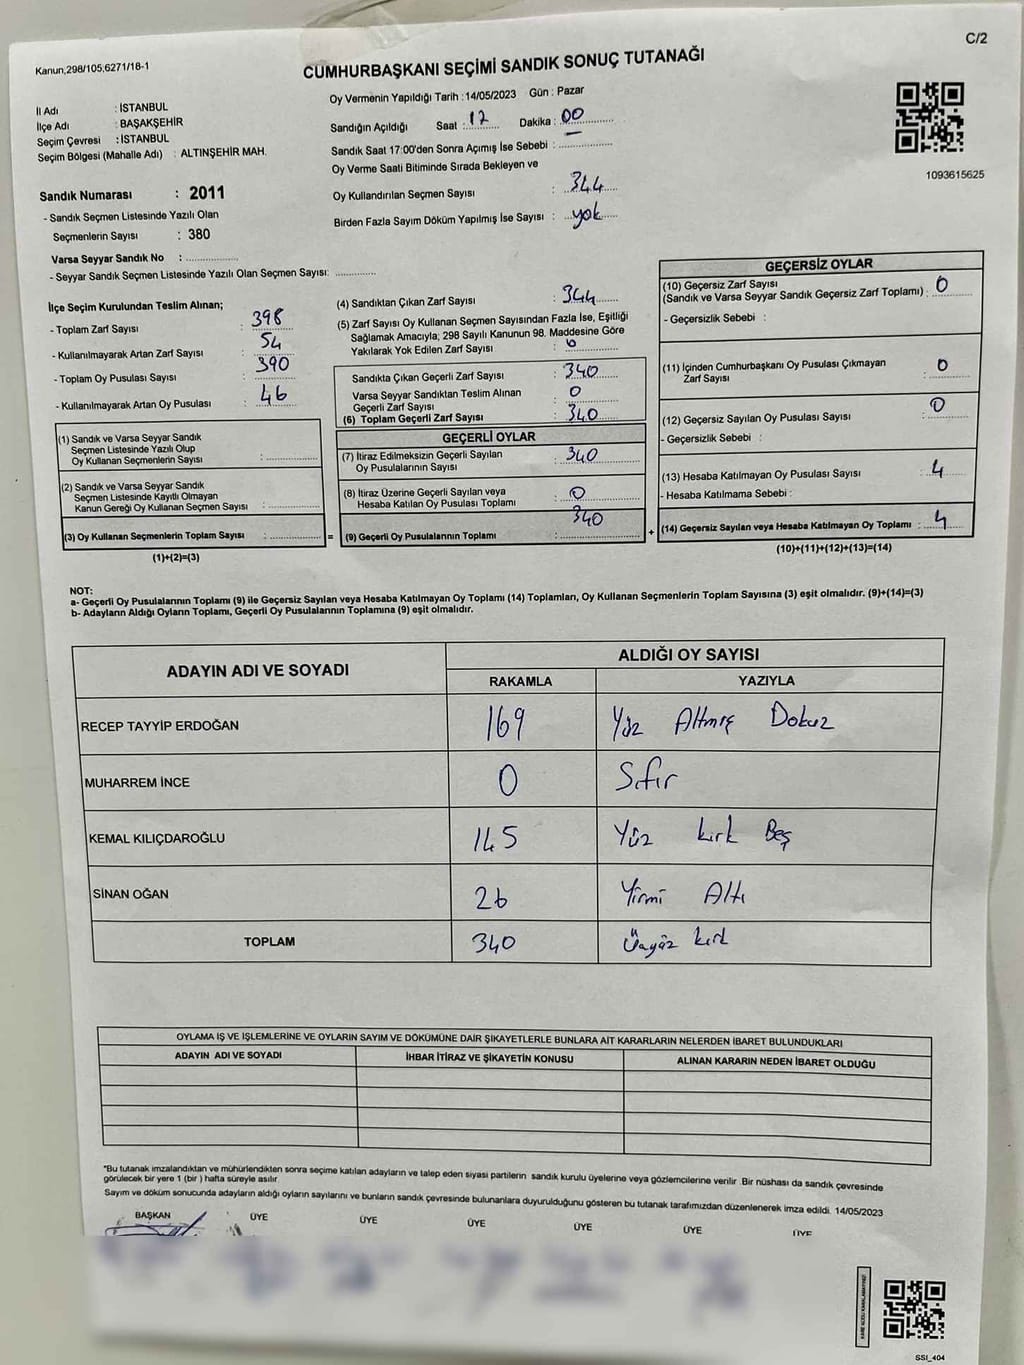 C/2
Kanun;298/105;6271/18-1
CUMHURBAŞKANI SEÇİMİ SANDIK SONUÇ TUTANAĞI
İl Adı : İSTANBUL
İlçe Adı : BAŞAKŞEHİR
Seçim Çevresi : İSTANBUL
Seçim Bölgesi (Mahalle Adı) : ALTINŞEHİR MAH.
Sandık Numarası : 2011
- Sandık Seçmen Listesinde Yazılı Olan
Seçmenlerin Sayısı : 380
Varsa Seyyar Sandık No : ..............
- Seyyar Sandık Seçmen Listesinde Yazılı Olan Seçmen Sayısı: ............
Oy Vermenin Yapıldığı Tarih :14/05/2023 Gün : Pazar
Sandığın Açıldığı Saat : 17 Dakika : 00
Sandık Saat 17:00'den Sonra Açımış İse Sebebi : ..............
Oy Verme Saati Bitiminde Sırada Bekleyen ve
Oy Kullandırılan Seçmen Sayısı : 344
Birden Fazla Sayım Döküm Yapılmış İse Sayısı : yok
1093615625
İlçe Seçim Kurulundan Teslim Alınan;
- Toplam Zarf Sayısı : 398
- Kullanılmayarak Artan Zarf Sayısı : 54
- Toplam Oy Pusulası Sayısı : 390
- Kullanılmayarak Artan Oy Pusulası : 46
(1) Sandık ve Varsa Seyyar Sandık
Seçmen Listesinde Yazılı Olup
Oy Kullanan Seçmenlerin Sayısı : ..............
(2) Sandık ve Varsa Seyyar Sandık
Seçmen Listesinde Kayıtlı Olmayan
Kanun Gereği Oy Kullanan Seçmen Sayısı : ..............
(3) Oy Kullanan Seçmenlerin Toplam Sayısı : .............. =
(1)+(2)=(3)
(4) Sandıktan Çıkan Zarf Sayısı : 344
(5) Zarf Sayısı Oy Kullanan Seçmen Sayısından Fazla İse, Eşitliği
Sağlamak Amacıyla; 298 Sayılı Kanunun 98. Maddesine Göre
Yakılarak Yok Edilen Zarf Sayısı : 0
Sandıkta Çıkan Geçerli Zarf Sayısı : 340
Varsa Seyyar Sandıktan Teslim Alınan
Geçerli Zarf Sayısı : 0
(6) Toplam Geçerli Zarf Sayısı : 340
GEÇERLİ OYLAR
(7) İtiraz Edilmeksizin Geçerli Sayılan
Oy Pusulalarının Sayısı : 340
(8) İtiraz Üzerine Geçerli Sayılan veya
Hesaba Katılan Oy Pusulası Toplamı : 0
(9) Geçerli Oy Pusulalarının Toplamı : 340 +
GEÇERSİZ OYLAR
(10) Geçersiz Zarf Sayısı
(Sandık ve Varsa Seyyar Sandık Geçersiz Zarf Toplamı) : 0
- Geçersizlik Sebebi :
(11) İçinden Cumhurbaşkanı Oy Pusulası Çıkmayan
Zarf Sayısı : 0
(12) Geçersiz Sayılan Oy Pusulası Sayısı : 0
- Geçersizlik Sebebi :
(13) Hesaba Katılmayan Oy Pusulası Sayısı : 4
- Hesaba Katılmama Sebebi :
(14) Geçersiz Sayılan veya Hesaba Katılmayan Oy Toplamı : 4
(10)+(11)+(12)+(13)=(14)
NOT:
a- Geçerli Oy Pusulalarının Toplamı (9) ile Geçersiz Sayılan veya Hesaba Katılmayan Oy Toplamı (14) Toplamları, Oy Kullanan Seçmenlerin Toplam Sayısına (3) eşit olmalıdır. (9)+(14)=(3)
b- Adayların Aldığı Oyların Toplamı, Geçerli Oy Pusulalarının Toplamına (9) eşit olmalıdır.
ADAYIN ADI VE SOYADI ALDIĞI OY SAYISI
RAKAMLA YAZIYLA
RECEP TAYYİP ERDOĞAN 169 Yüz Altmış Dokuz
MUHARREM İNCE 0 Sıfır
KEMAL KILIÇDAROĞLU 145 Yüz kırk Beş
SİNAN OĞAN 26 Yirmi Altı
TOPLAM 340 Üçyüz kırk
OYLAMA İŞ VE İŞLEMLERİNE VE OYLARIN SAYIM VE DÖKÜMÜNE DAİR ŞİKAYETLERLE BUNLARA AİT KARARLARIN NELERDEN İBARET BULUNDUKLARI
ADAYIN ADI VE SOYADI İHBAR İTİRAZ VE ŞİKAYETİN KONUSU ALINAN KARARIN NEDEN İBARET OLDUĞU
"Bu tutanak imzalandıktan ve mühürlendikten sonra seçime katılan adayların ve talep eden siyasi partilerin sandık kurulu üyelerine veya gözlemcilerine verilir .Bir nüshası da sandık çevresinde
görülecek bir yere 1 (bir ) hafta süreyle asılır.
Sayım ve döküm sonucunda adayların aldığı oyların sayılarını ve bunların sandık çevresinde bulunanlara duyurulduğunu gösteren bu tutanak tarafımızdan düzenlenerek imza edildi. 14/05/2023
BAŞKAN ÜYE ÜYE ÜYE ÜYE ÜYE ÜYE
SSI_404